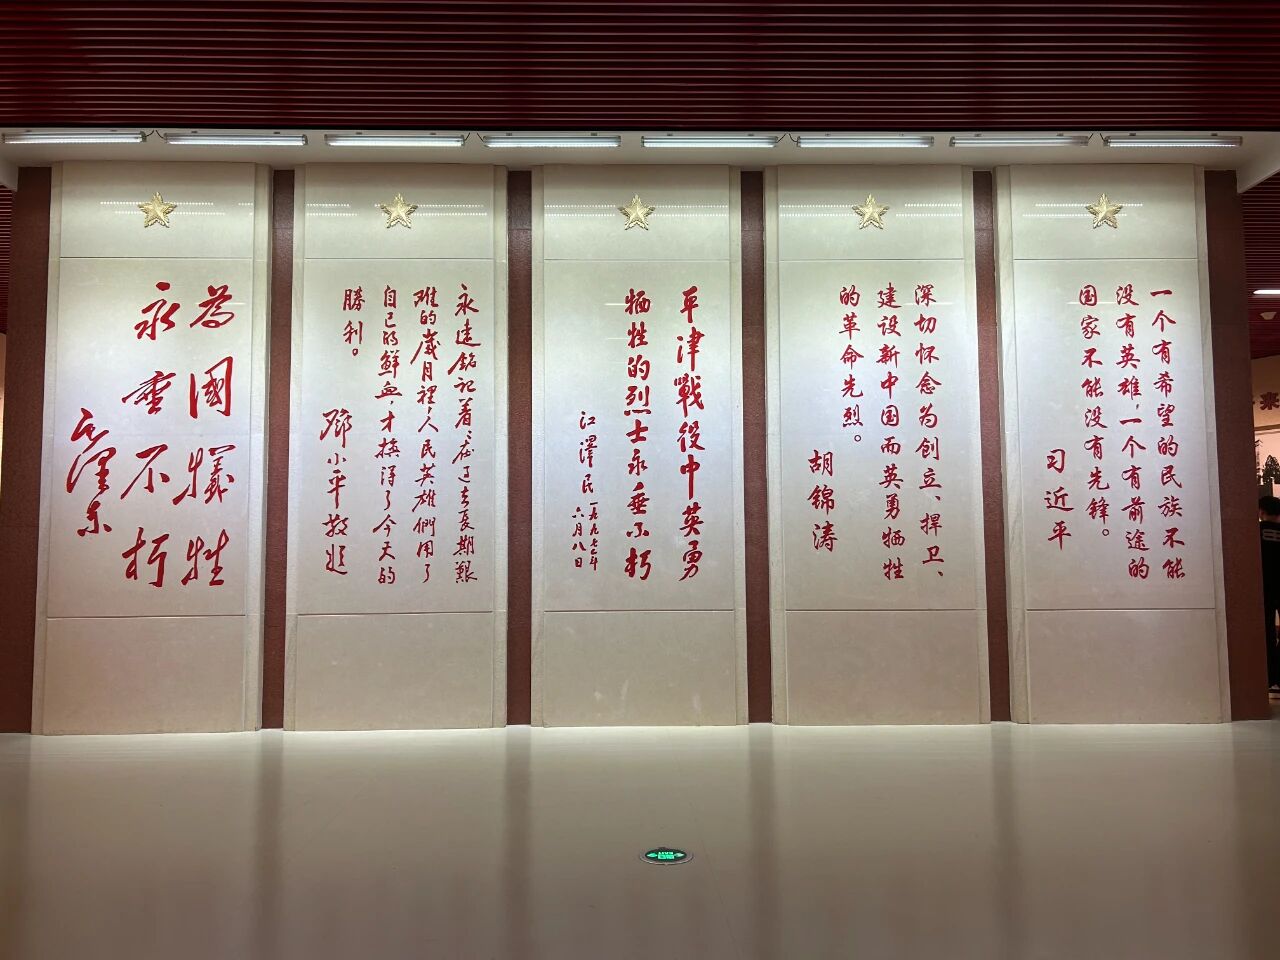 為國犧牲
永垂不朽
毛澤东
永遠銘記着:在过去長期艱
难的歲月裡,人民英雄們用了
自己的鮮血才換得了今天的
勝利。
鄧小平敬题
平津戰役中英勇
牺牲的烈士永垂不朽
江澤民
一九九七年
六月八日
深切怀念为创立、捍卫、
建设新中国而英勇牺牲
的革命先烈。
胡锦涛
一个有希望的民族不能
没有英雄,一个有前途的
国家不能没有先锋。
习近平
来